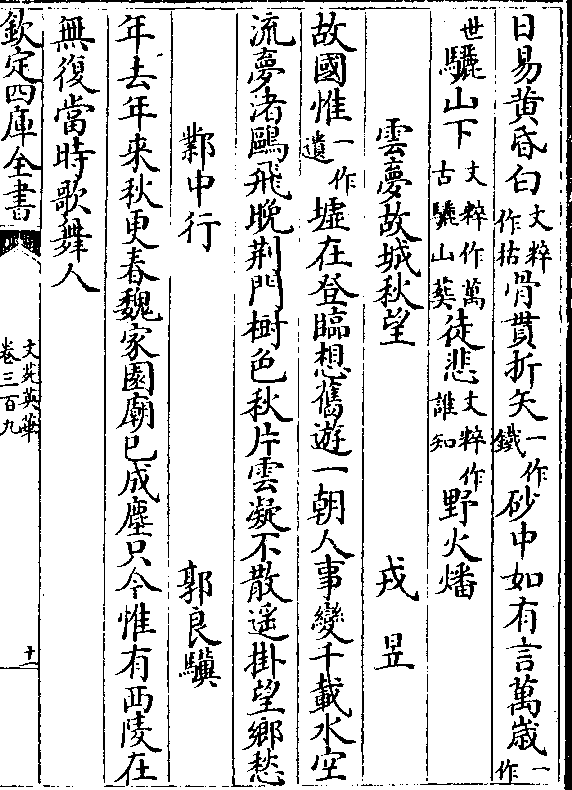 日易黄昏白文粹作枯骨貫折矢一作鐵砂中如有言萬歲一作
世驪山下文粹作萬古驪山葬徒悲文粹作誰知野火燔
雲夢故城秋望 戎昱
故國惟一作遺墟在登臨想舊遊一朝人事變千載水空
流夢渚鷗飛晚荆門樹色秋片雲凝不散遥掛望鄉愁
鄴中行 郭良驥
年去年来秋更春魏家園廟已成塵只今惟有西陵在
無復當時歌舞人
欽定四庫全書 文苑英華卷三百九 十一